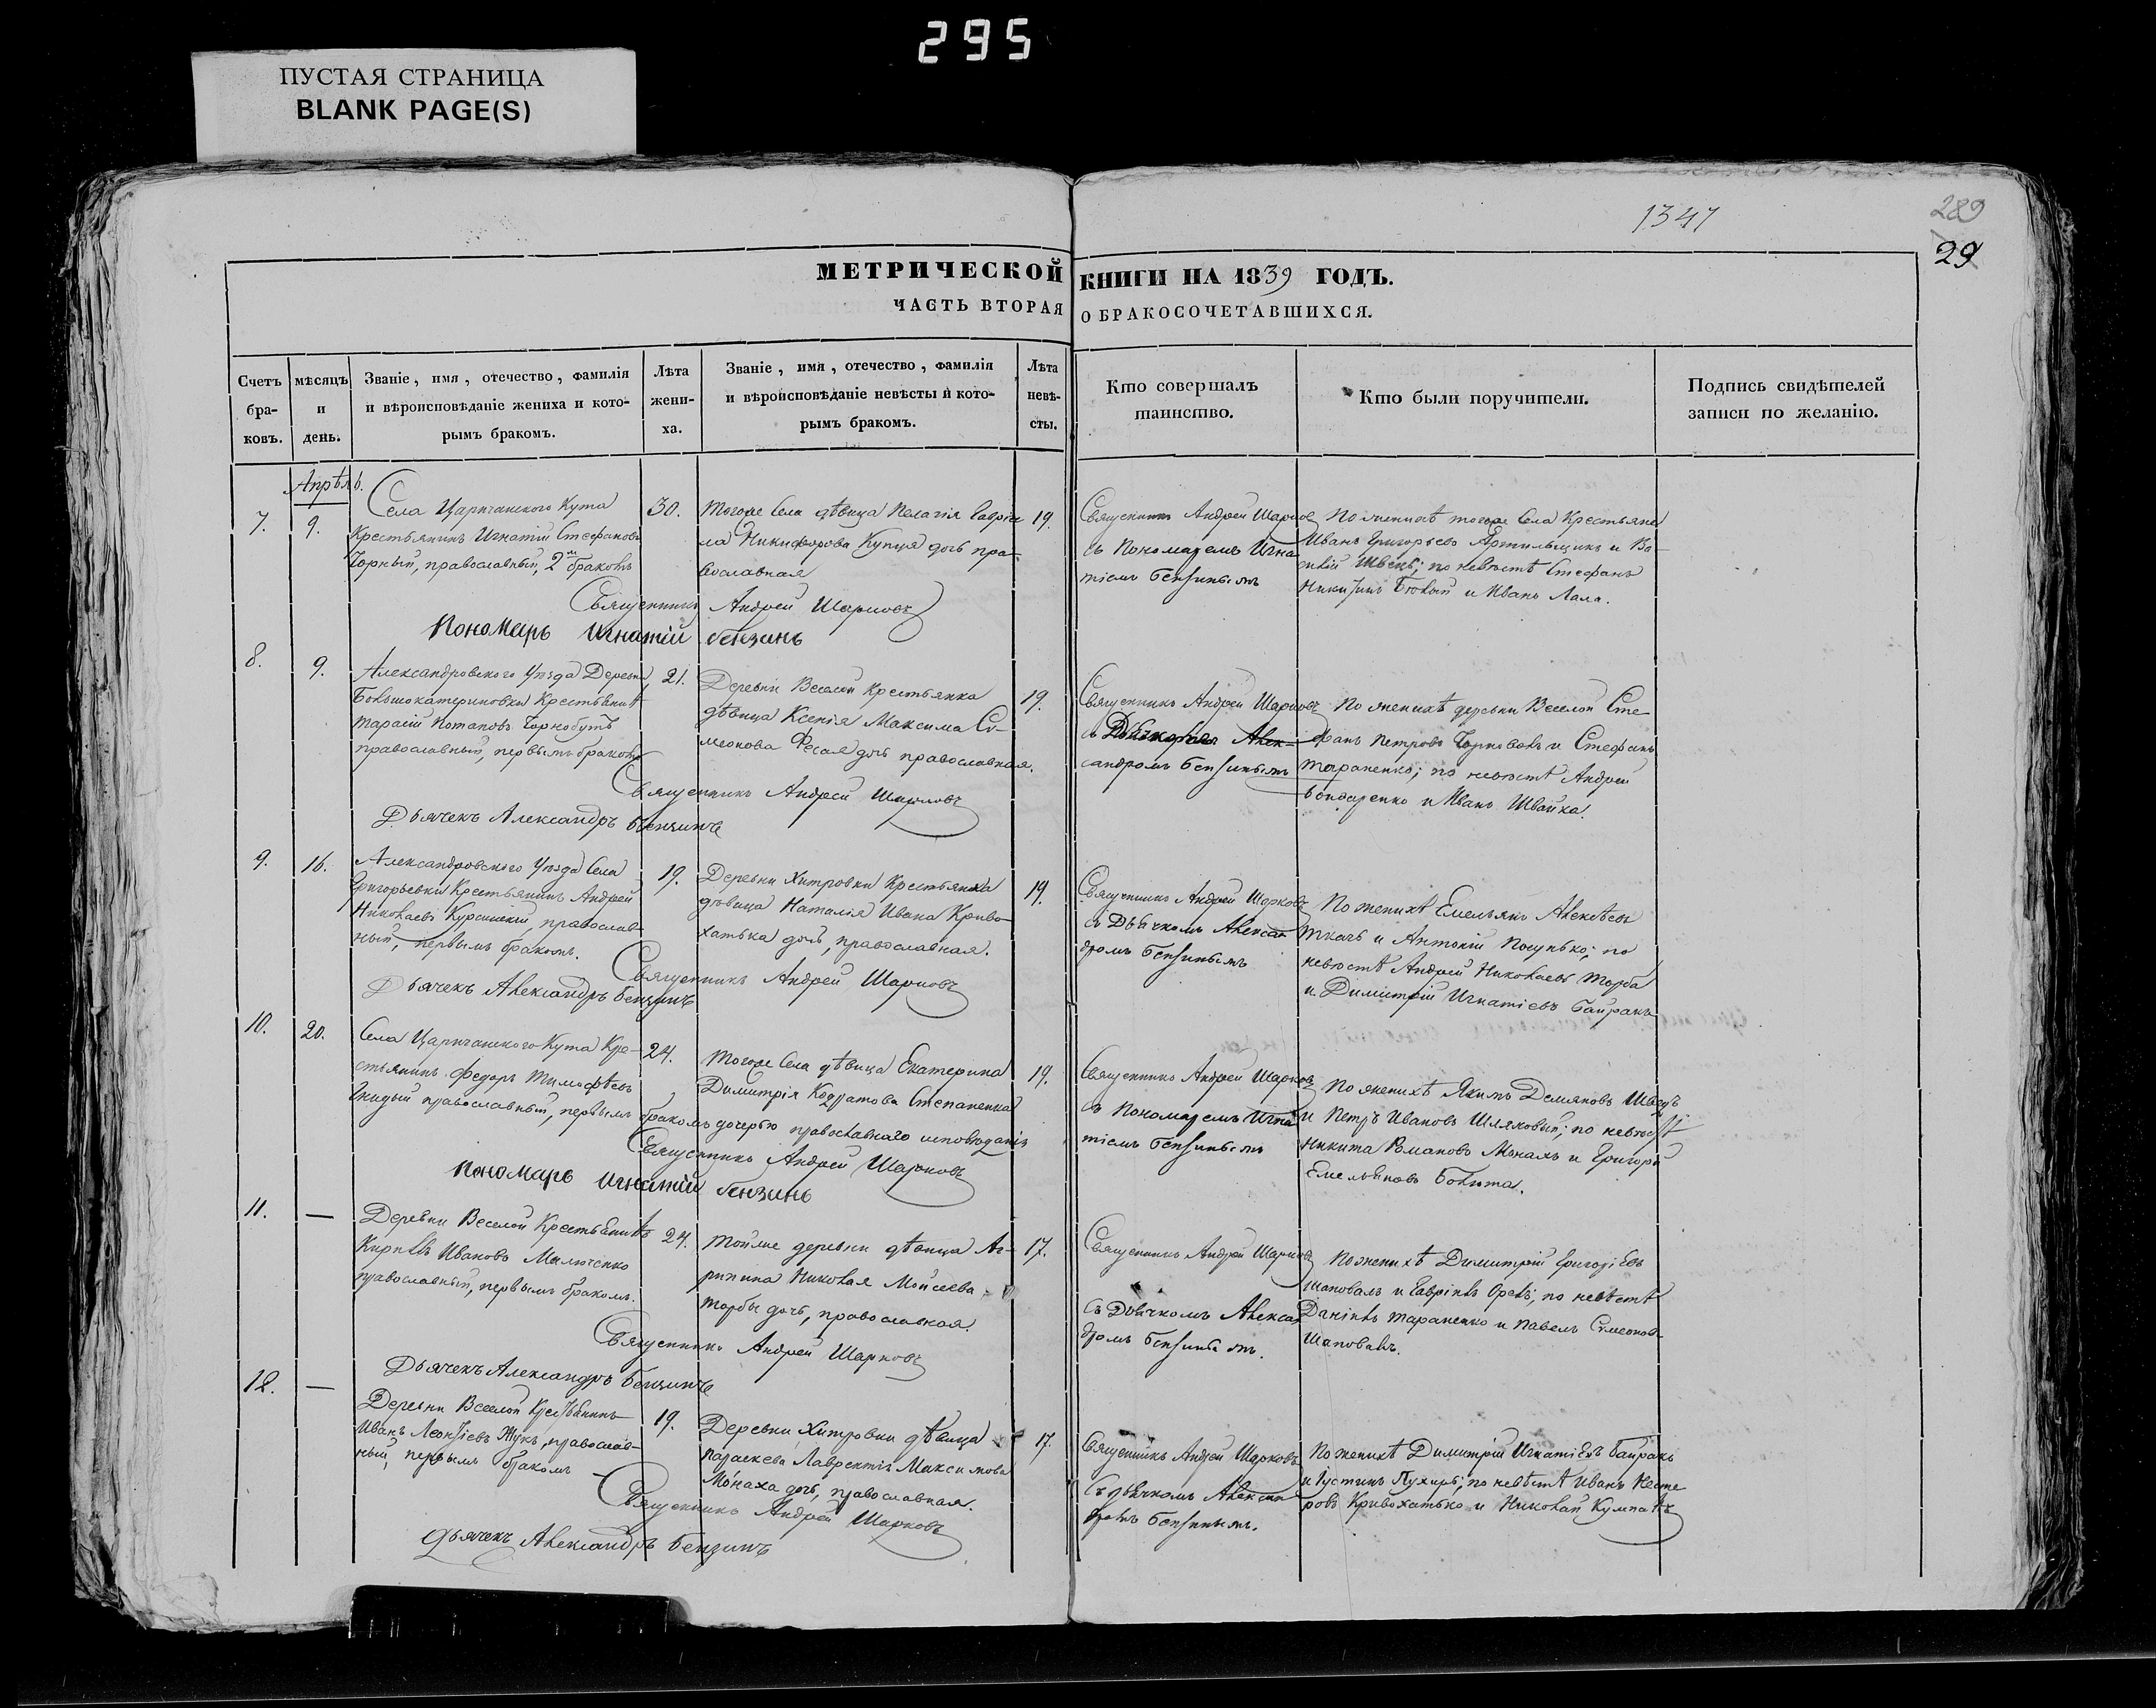 295
ПУСТАЯ СТРАНИЦА
BLANK PAGE(S)
1347
289
29
МЕТРИЧЕСКОЙ КНИГИ НА 1839 ГОДЪ.
ЧАСТЬ ВТОРАЯ О БРАКОСОЧЕТАВШИХСЯ.
Счетъ бра-ковъ.
мѣсяцъ и день.
Званіе, имя, отечество, фамилія
и вѣроисповѣданіе жениха и кото-
рымъ бракомъ.
Лѣта жени-ха.
Званіе, имя, отечество, фамилія
и вѣроисповѣданіе невѣсты и кото-
рымъ бракомъ.
Лѣта невѣ-сты.
Кто совершалъ
таинство.
Кто были поручители.
Подпись свидѣтелей
записи по желанію.
Апрѣль.
7.
9.
Села Царичанского Кута
Крестьянинъ Игнатій Стефановъ
Чорный, православный, 2м бракомъ
30.
Тогоже Села дѣвица Пелагія Гаврiи
ла Никифорова Купця дочь пра-
вославная
19.
Священникъ Андрей Шарковъ
съ Пономаремъ Игна
тіемъ Бензинымъ
По женихѣ тогоже Села Крестьяне
Иванъ Григорьевъ Артильщикъ и Ва-
силій Швецъ; по невѣстѣ Стефанъ
Никитинъ Бѣлый и Иванъ Лала.
Священникъ Андрей Шарковъ
Пономарь Игнатій Бензинъ
8.
9.
Александровского Уѣзда Деревни
Большокатериновки Крестьянинъ
Тарасій Потаповъ Чорнобутъ
православный, первымъ бракомъ
21.
Деревни Веселой Крестьянка
дѣвица Ксенія Максима Си-
меонова Фесая дочь православная.
19.
Священникъ Андрей Шарковъ
съ Дьячкомъ Алек-
сандромъ Бензинымъ
По женихѣ деревни Веселой Сте
фанъ Петровъ Чорноволъ и Стефанъ
Тараненко; по невѣстѣ Андрей
Бондаренко и Иванъ Швайка.
Священникъ Андрей Шарковъ
Дьячекъ Александръ Бензинъ
9.
16.
Александровского Уѣзда Села
Григорьевки Крестьянинъ Андрей
Николаевъ Курсинскій, православ-
ный, первымъ бракомъ.
19.
Деревни Хитровки Крестьянка
дѣвица Наталія Ивана Криво-
хатька дочь, православная.
19.
Священникъ Андрей Шарковъ
съ Дьячкомъ Алексан
дромъ Бензинымъ
По женихѣ Емельянъ Алексѣевъ
Ткачъ и Антоній Посунько; по
невѣстѣ Андрей Николаевъ Торба
и Димитрій Игнатіевъ Байракъ
Священникъ Андрей Шарковъ
Дьячекъ Александръ Бензинъ
10.
20.
Села Царичанского-Кута Кре-
стьянинъ Федоръ Тимофѣевъ
православный, первымъ бракомъ
24.
Тогоже Села дѣвица Екатерина
Димитрія Кодратова Степаненка
дочерью православнаго исповѣданія
19.
Священникъ Андрей Шарковъ
съ Пономаремъ Игна
тіемъ Бензинымъ
По женихѣ Якимъ Демяновъ Швецъ
и Петръ Ивановъ Шляховый; по невѣстѣ
Никита Романовъ Монахъ и Григорій
Емельяновъ Болыта.
Священникъ Андрей Шарковъ
Пономарь Игнатій Бензинъ
11.
—
Деревни Веселой Крестьянинъ
Кирилъ Ивановъ Милютенко
православный, первымъ бракомъ.
24.
Тойже деревни дѣвица Аг-
рипина Николая Мойсеева
Торбы дочь, православная.
17.
Священникъ Андрей Шарковъ
съ Дьячкомъ Алексан
дромъ Бензинымъ.
По женихѣ Димитрій Григоріевъ
Шаповалъ и Гавріилъ Орелъ; по невѣстѣ
Даніилъ Тараненко и Павелъ Симеоновъ
Шаповалъ.
Священникъ Андрей Шарковъ
Дьячекъ Александръ Бензинъ
12.
—
Деревни Веселой Крестьянинъ
Иванъ Леонтіевъ Жукъ, православ-
ный, первымъ бракомъ
19.
Деревни Хитровки дѣвица
Параскева Лаврентія Максимова
Монаха дочь, православная.
17.
Священникъ Андрей Шарковъ
Съ дьячкомъ Алексан
дромъ Бензинымъ.
По женихѣ Димитрій Игнатіевъ Байракъ
и Іустинъ Пухиръ; по невѣстѣ Иванъ Несте
ровъ Кривохатько и Николай Кумпанъ
Священникъ Андрей Шарковъ
Дьячекъ Александръ Бензинъ